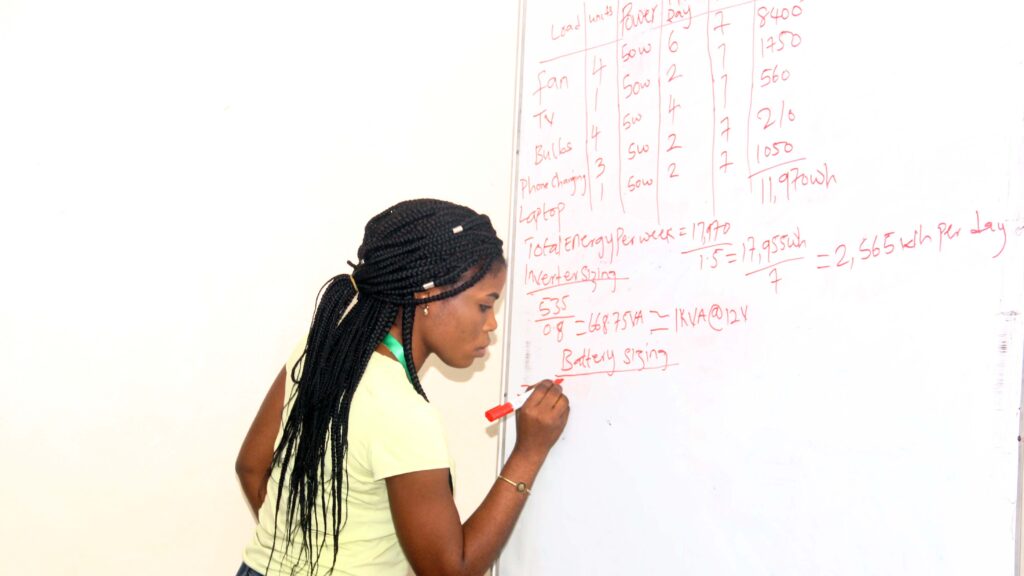 Load units Power Day 7 8400
fan 4 50w 6 7 1750
TV 1 50w 2 7 560
Bulbs 4 5w 4 7 210
Phone Charging 3 5w 2 7 1050
Laptop 1 50w 2 11,970wh
Total Energy Per week = 11,970
1.5 = 17,955wh
7 = 2,565wh per day
Inverter sizing
535
0.8 = 668.75VA ≃ 1KVA@12V
Battery sizing